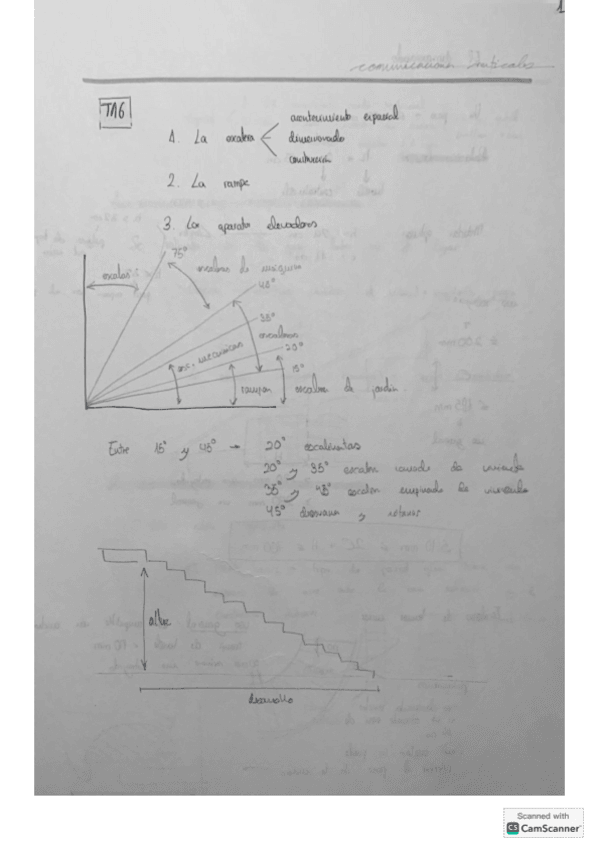 1
comunicaciones verticales
TA6
1. La escalera
acontecimiento espacial
dimensionado
construcción
2. La rampa
3. Los aparatos elevadores
75°
escalas
escaleras de
45°
35°
escaleras
esc. mecanicas
20°
15°
rampas
escaleras de jardin.
Entre 15° y 45° → 20° escalinatas
20° y 35° escalera comoda de vivienda
35° y 45° escalera empinada de vivienda
45° desvanes y sotanos
altura
desarrollo
Scanned with
CS CamScanner